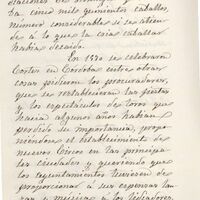 ba cinco mil quinientos caballos,
número considerable si se atien-
de á lo que la caja caballar
habia decaido.
En 1570 se celebraron
Cortes en Córdoba y entre otras
cosas pidieron los procuradores,
que se restablecieran las fiestas
y los espectáculos de toros que
hacia algunos años habian
perdido su importancia, propo-
niendo el establecimiento de
nuevos Circos en las principa-
les ciudades y queriendo que
los ayuntamientos tuviesen de
proporcionar á sus expensas lan-
zas y música á los lidiadores,